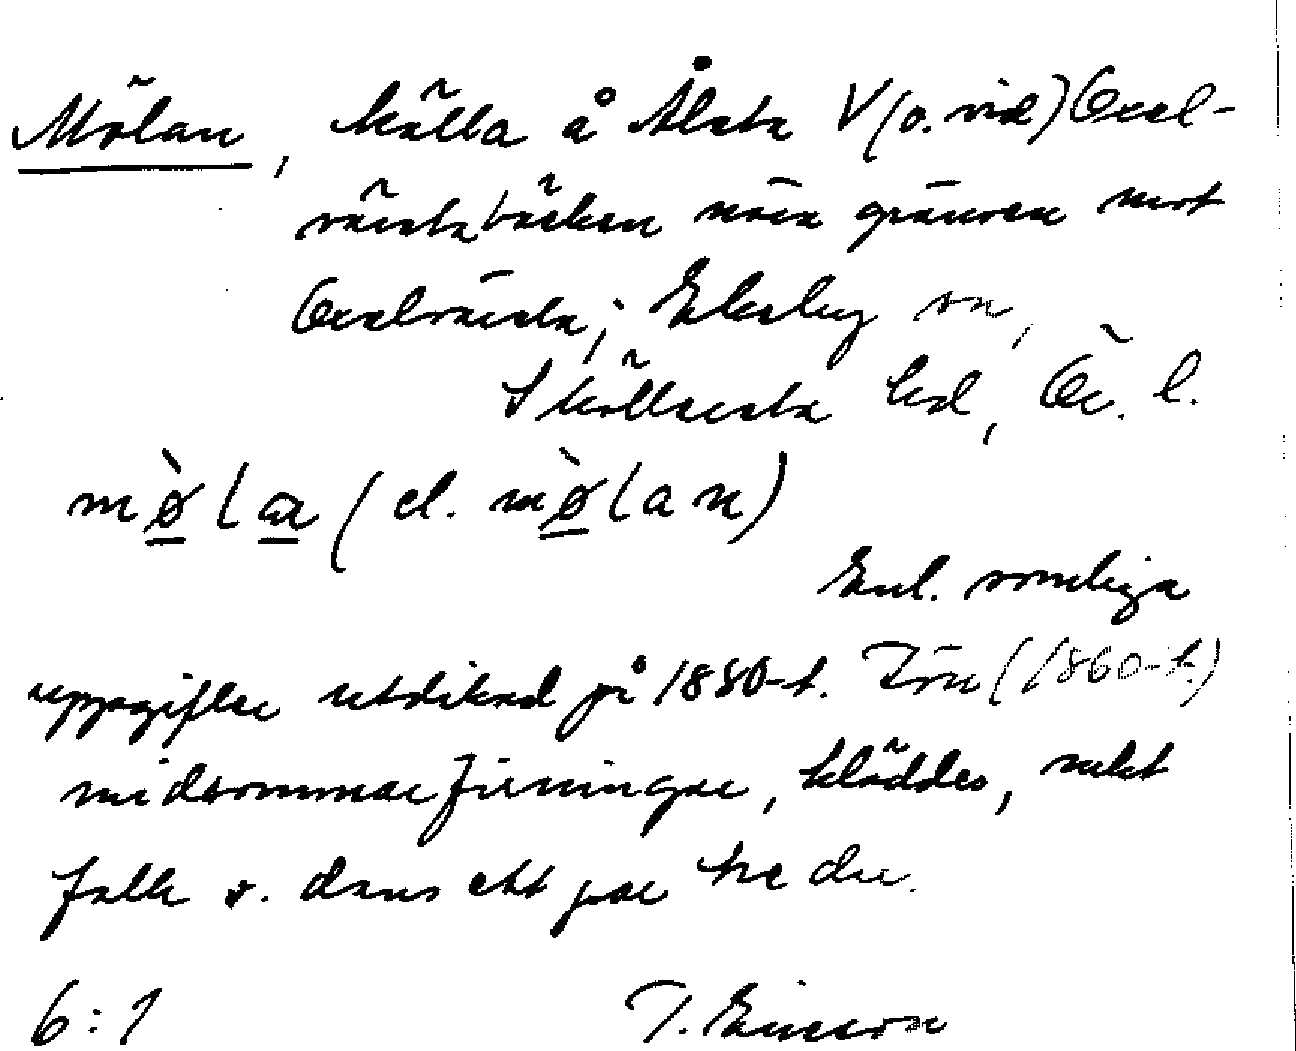 Mölan, källa å Ålsta V (o. vid) Öcel-
värstabäcken nära gränsen mot
nära; Ekeby sn,
Sköllersta hd, Ör. l.
mø̀la (el. mø̀lan)
Enl. somliga
uppgifter utdikad på 1880-t. Förr (1860-t.)
midsommarfirningar, kläddes, mkt
folk o. dans ett par tre da.
6:1 T. Ericsson